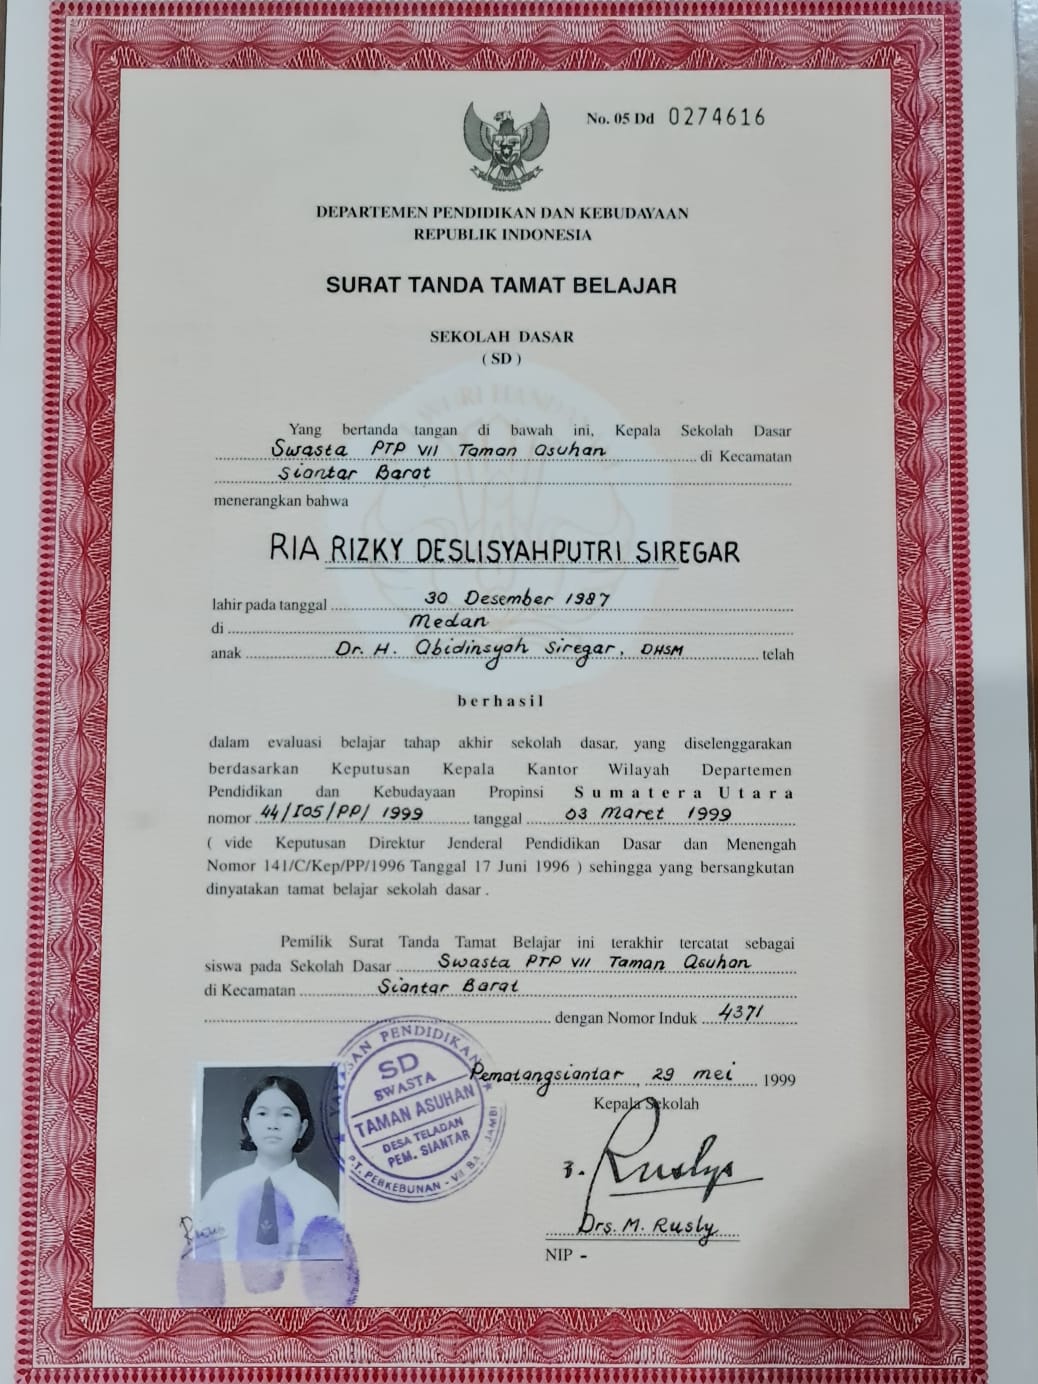 No. 05 Dd 0274616
DEPARTEMEN PENDIDIKAN DAN KEBUDAYAAN
REPUBLIK INDONESIA
SURAT TANDA TAMAT BELAJAR
SEKOLAH DASAR
( SD )
Yang bertanda tangan di bawah ini, Kepala Sekolah Dasar
Swasta PTP VII Taman Asuhan di Kecamatan
Siantar Barat
menerangkan bahwa
RIA RIZKY DESLISYAHPUTRI SIREGAR
lahir pada tanggal 30 Desember 1987
di Medan
anak Dr. H. Abidinsyah Siregar, DHSM telah
berhasil
dalam evaluasi belajar tahap akhir sekolah dasar, yang diselenggarakan
berdasarkan Keputusan Kepala Kantor Wilayah Departemen
Pendidikan dan Kebudayaan Propinsi Sumatera Utara
nomor 44/I05/PP/ 1999 tanggal 03 Maret 1999
( vide Keputusan Direktur Jenderal Pendidikan Dasar dan Menengah
Nomor 141/C/Kep/PP/1996 Tanggal 17 Juni 1996 ) sehingga yang bersangkutan
dinyatakan tamat belajar sekolah dasar .
Pemilik Surat Tanda Tamat Belajar ini terakhir tercatat sebagai
siswa pada Sekolah Dasar Swasta PTP VII Taman Asuhan
di Kecamatan Siantar Barat
dengan Nomor Induk 4371
Pematangsiantar, 29 mei 1999
Kepala Sekolah
YAYASAN PENDIDIKAN
SD
SWASTA
TAMAN ASUHAN
DESA TELADAN
PEM. SIANTAR
PT. PERKEBUNAN - VII BA. JAMBI
Drs. M. Rusly
NIP -